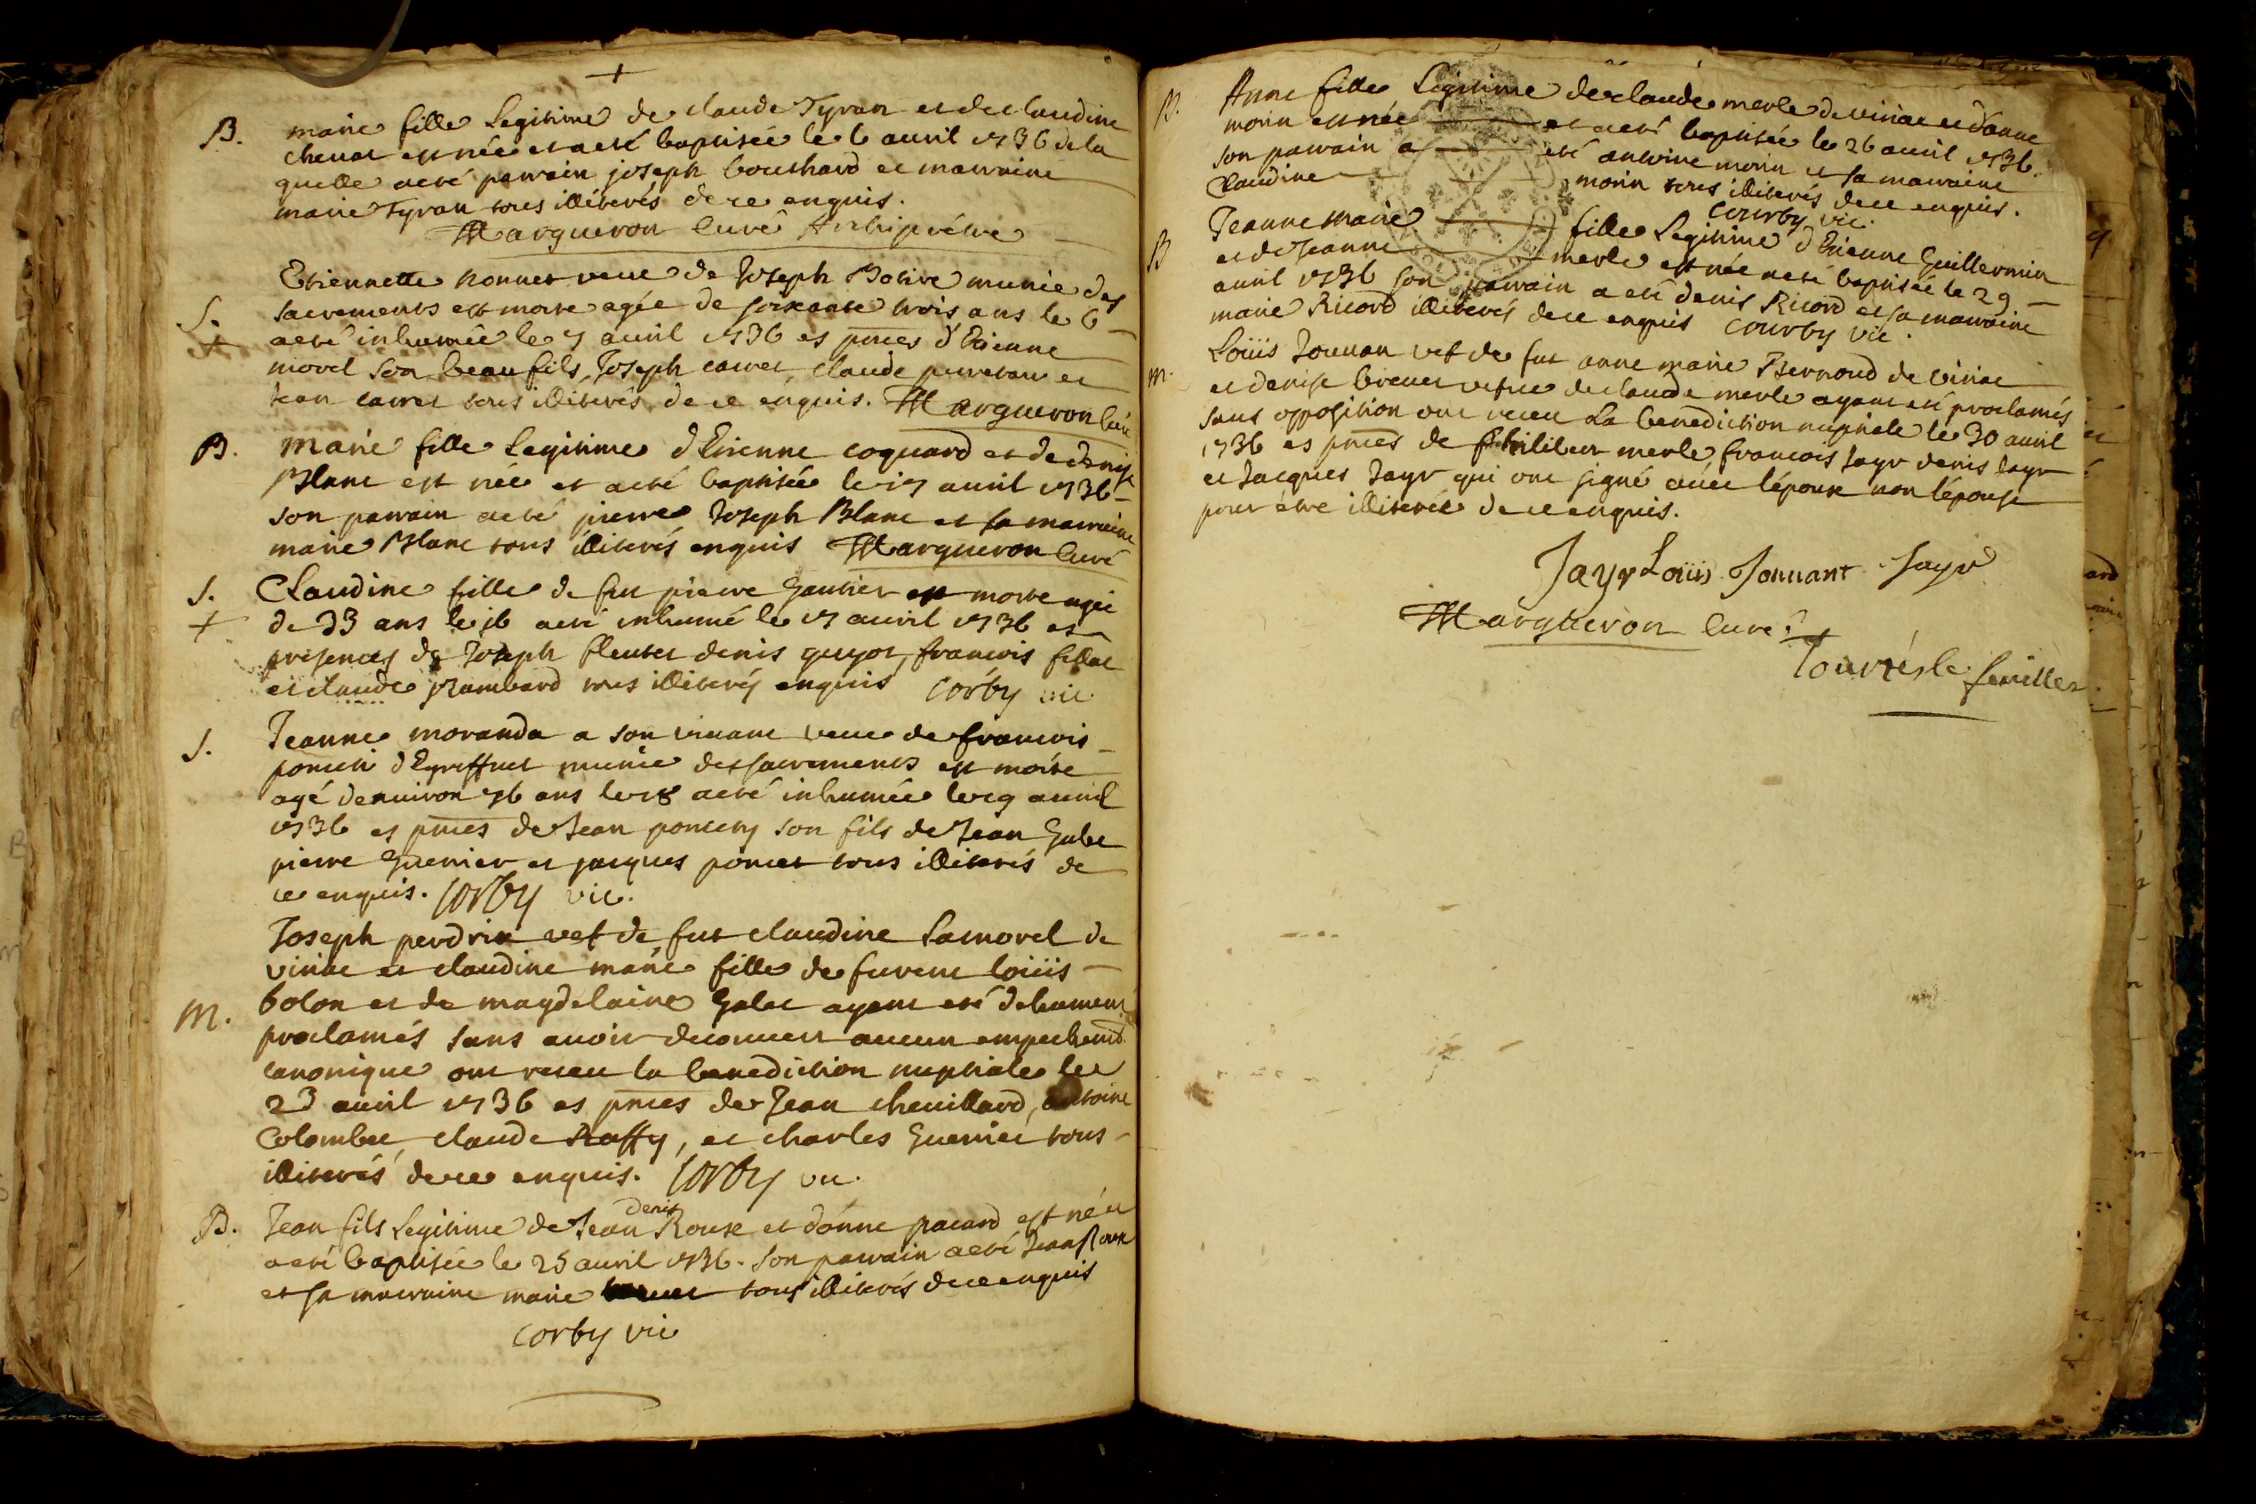 B. marie fille Legitime de claude Tyran et de claudine
chenat est née et a eté baptisée le 6 avril 1736 de la
quelle a eté parrain joseph bouchard et marraine
marie Tyran tous illiterés de ce enquis.
Margueron Curé Archiprêtre
Etiennette veuve de Joseph munie des
S. sacrements est morte agée de soixante trois ans le 6
a eté inhumée le 7 avril 1736 es pnces d'Etienne
morel son beau fils, Joseph carret, claude et
jean carret tous illiterés de ce enquis. Margueron Curé
B. Marie fille Legitime d'Etienne coquard et de denise
Blanc est née et a eté baptisée le 17 avril 1736
son parrain a eté pierre Joseph Blanc et sa marraine
marie Blanc tous illiterés enquis Margueron Curé
S. Claudine fille de fut pierre Gautier est morte agée
de 33 ans le 16 a eté inhumé le 17 avril 1736 es
presences de Joseph denis guyot, francois
et claude Rambard tous illiterés enquis Corby vic
S. Jeanne moranda a son vivant veuve de francois
poncin d'Egreffuel munie des sacrements est morte
agé denviron 76 ans le 18 a eté inhumée le 19 avril
1736 es pnces de Jean poncin son fils de Jean Galet
pierre Guerrier et jacques poncet tous illiterés de
ce enquis. Corby vic.
Joseph perdrix vef de fut claudine Lamorel de
viriac et claudine marie fille de furent Loüis
M. bolon et de magdelaine Galet ayant eté duhument
proclamés sans avoir decouvert aucun empechemt
canonique ont receu la benediction nuptiale le
23 avril 1736 es pnces de Jean chevillard, antoine
Colombet claude Raffy, et charles Guerrier tous
illiterés de ce enquis. Corby vic.
denis
B. Jean fils Legitime de Jean Roux et d'anne pacard est né et
a eté baptisée le 25 avril 1736. son parrain a eté Jean Roux
et sa marraine marie tous illiterés de ce enquis
Corby vic
B. Anne fille Legitime de claude merle de viriac et d'anne
morin est née et a eté baptisée le 26 avril 1736.
son parrain a eté antoine morin et sa marraine
Claudine morin tous illiterés de ce enquis.
Courby vic.
B Jeanne marie fille Legitime d'Etienne Guillermin
et de Jeanne merle est née a eté baptisée le 29
avril 1736 son parrain a eté denis Ricord et sa marraine
marie Ricord illiterés de ce enquis Courby vic.
m. Loüis Jouuan vef de fut anne marie Bernoud de viriac
et denise brevet vefve de claude merle ayant eté proclamés
sans opposition ont receu La benediction nuptiale le 30 avril
1736 es pnces de philibert merle francois Jayr denis Jayr
et Jacques Jayr qui ont signé avec l'époux non l'épouse
pour être illiterée de ce enquis.
Jayr Loüis Jouuant Jayr
Margueron Curé
Tournés le feuillet.